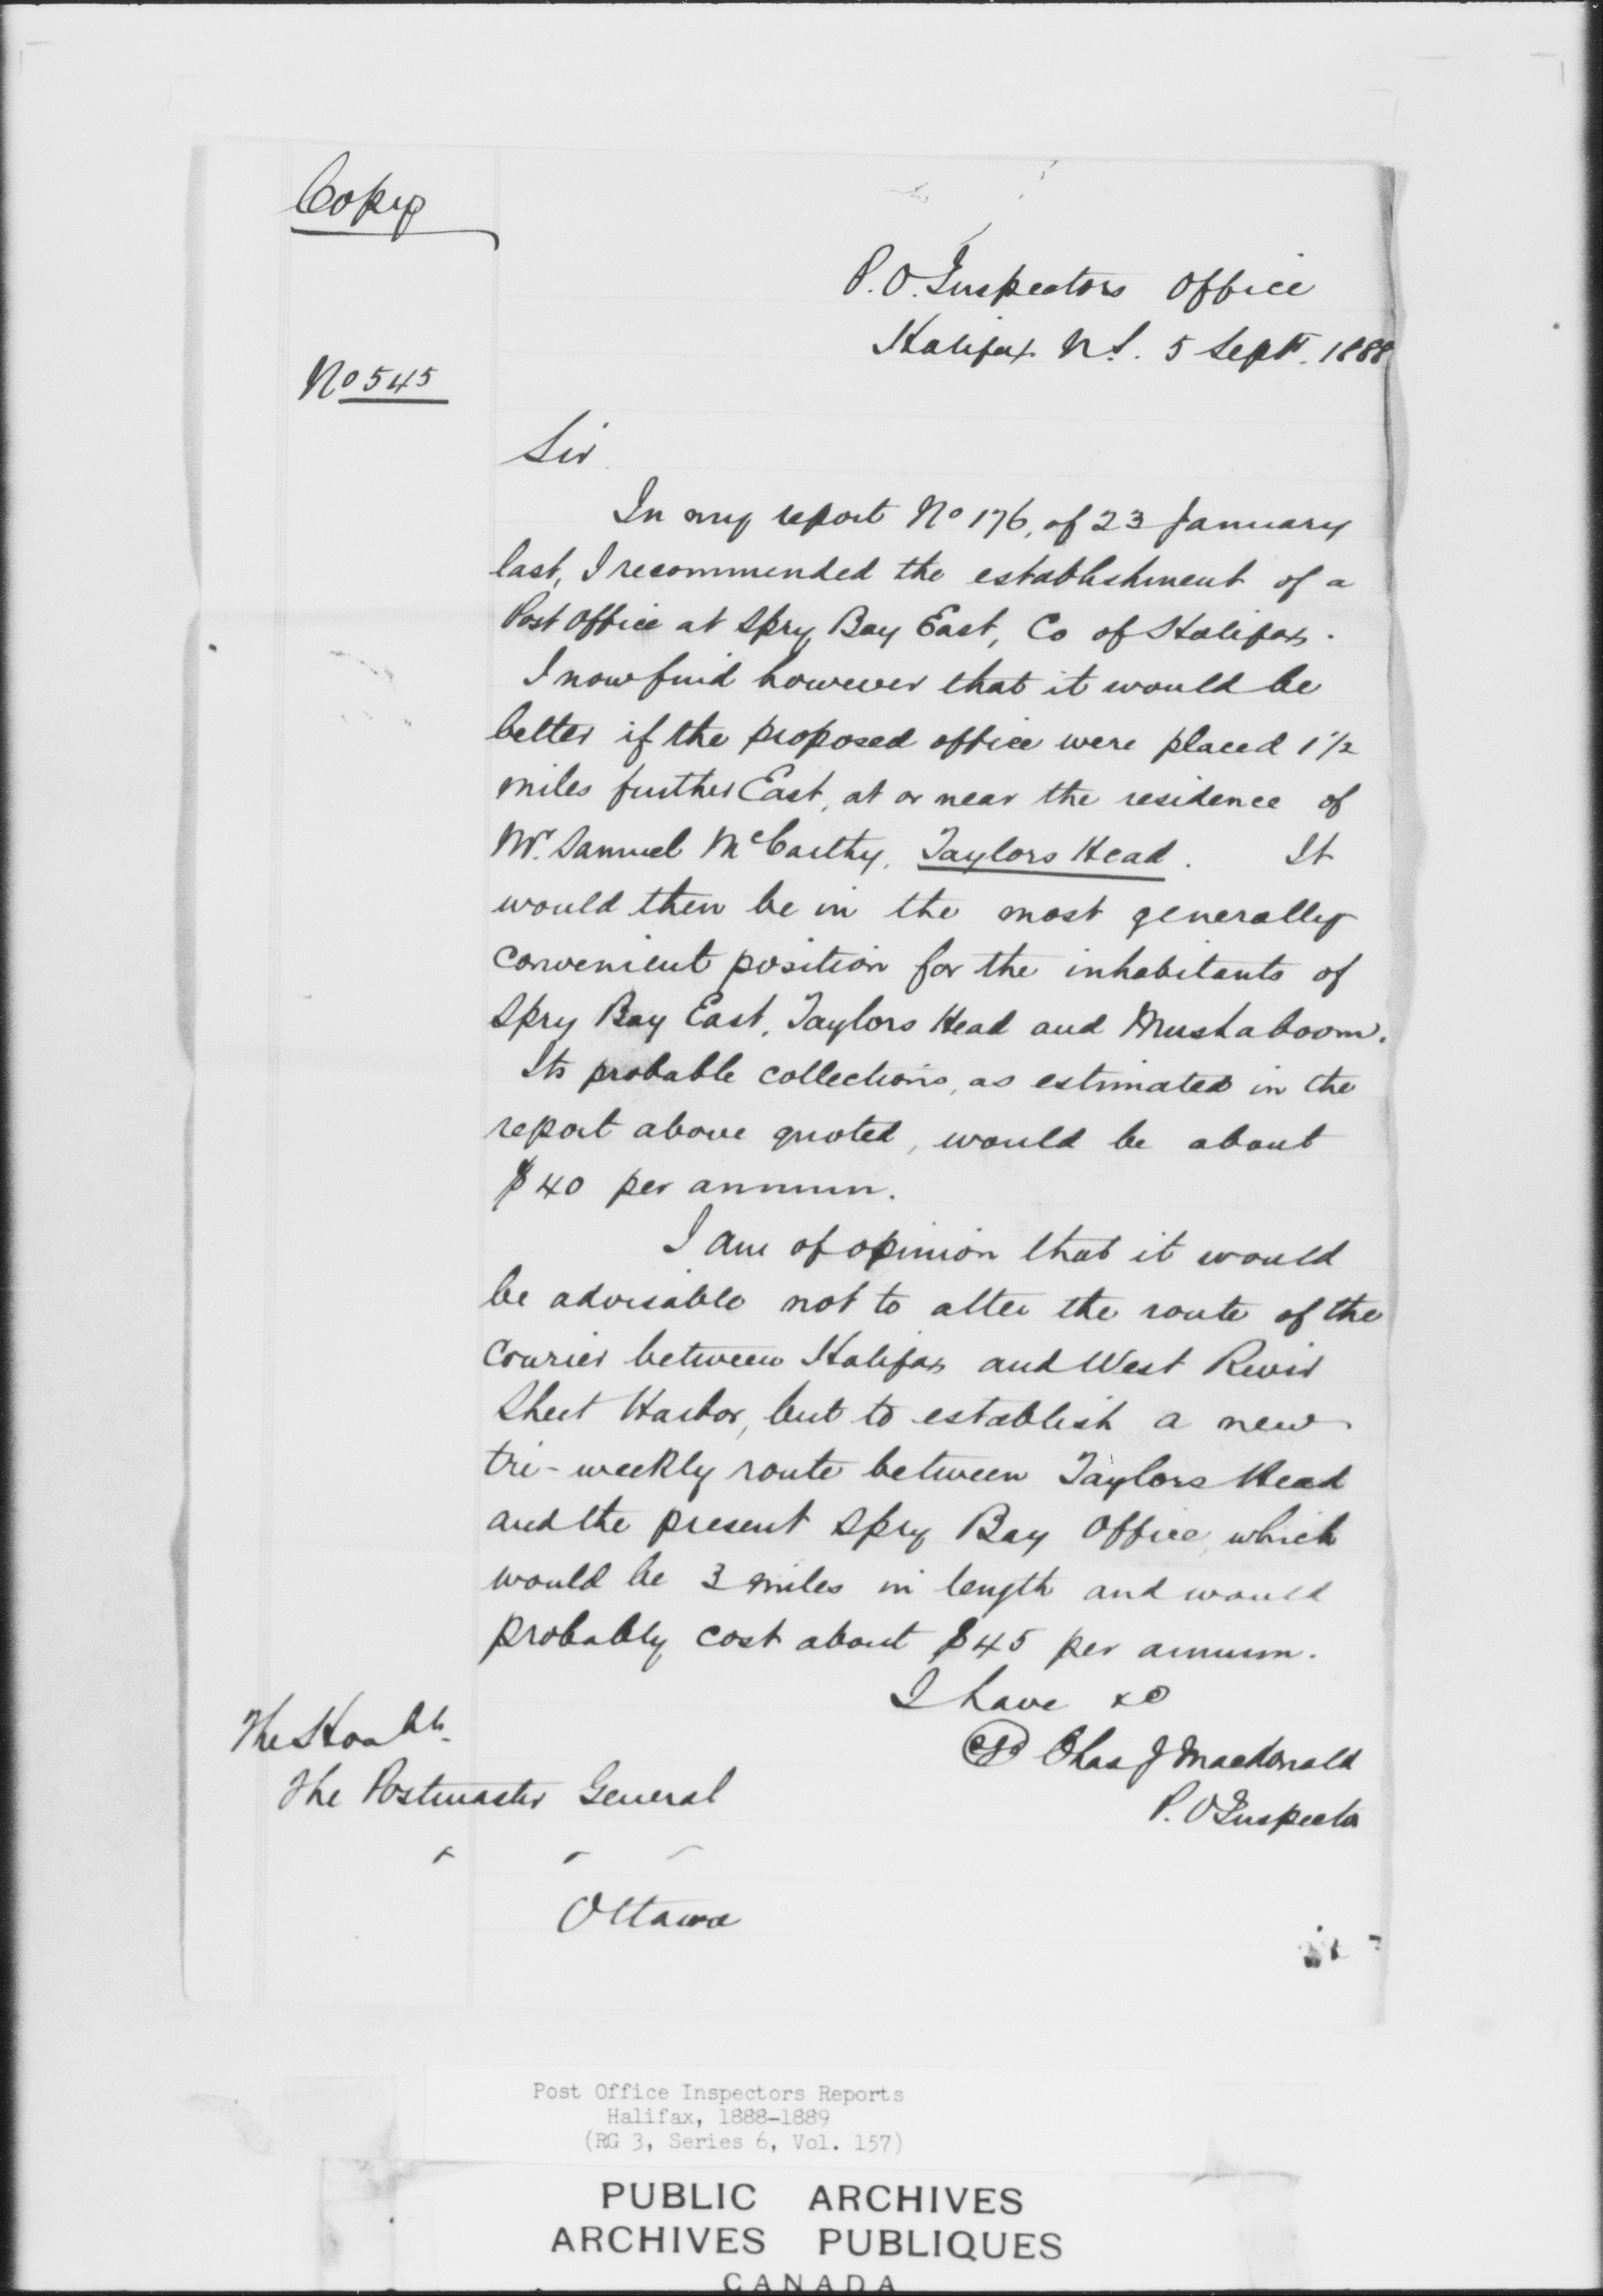 Copy
P.O. Inspectors Office
Halifax N.S. 5 Sept. 1888
No 545
Sir
In my report No 176, of 23 January
last, I recommended the establishment of a
Post Office at Spry Bay East, Co of Halifax.
I now find however that it would be
better if the proposed office were placed 1 1/2
miles further East, at or near the residence of
Mr. Samuel McCarthy, Taylors Head. It
would then be in the most generally
convenient position for the inhabitants of
Spry Bay East, Taylors Head and Mushaboom.
Its probable collections, as estimated in the
report above quoted, would be about
$40 per annum.
I am of opinion that it would
be advisable not to alter the route of the
Courier between Halifax and West River
Sheet Harbor, but to establish a new
tri-weekly route between Taylors Head
and the present Spry Bay Office, which
would be 3 miles in length and would
probably cost about $45 per annum.
I have &c
Chas J Macdonald
P.O Inspector
The Honble.
The Postmaster General
Ottawa
Post Office Inspectors Reports
Halifax, 1888-1889
(RG 3, Series 6, Vol. 157)
PUBLIC ARCHIVES
ARCHIVES PUBLIQUES
CANADA